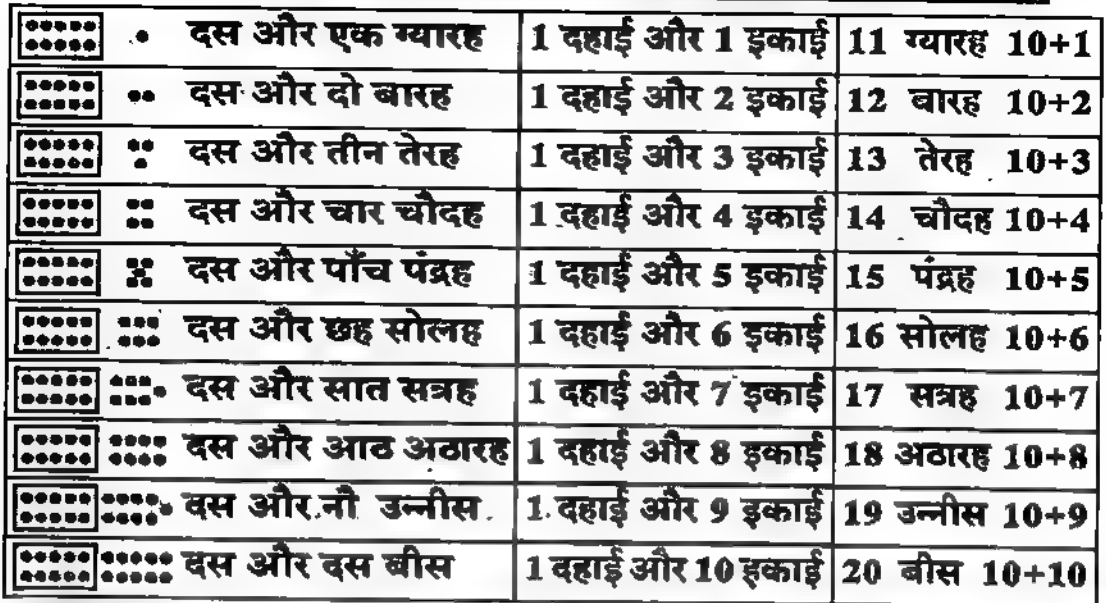 दस और एक ग्यारह 1 दहाई और 1 इकाई 11 ग्यारह 10+1
दस और दो बारह 1 दहाई और 2 इकाई 12 बारह 10+2
दस और तीन तेरह 1 दहाई और 3 इकाई 13 तेरह 10+3
दस और चार चौदह 1 दहाई और 4 इकाई 14 चौदह 10+4
दस और पाँच पंद्रह 1 दहाई और 5 इकाई 15 पंद्रह 10+5
दस और छह सोलह 1 दहाई और 6 इकाई 16 सोलह 10+6
दस और सात सत्रह 1 दहाई और 7 इकाई 17 सत्रह 10+7
दस और आठ अठारह 1 दहाई और 8 इकाई 18 अठारह 10+8
दस और नौ उन्नीस 1 दहाई और 9 इकाई 19 उन्नीस 10+9
दस और दस बीस 1 दहाई और 10 इकाई 20 बीस 10+10